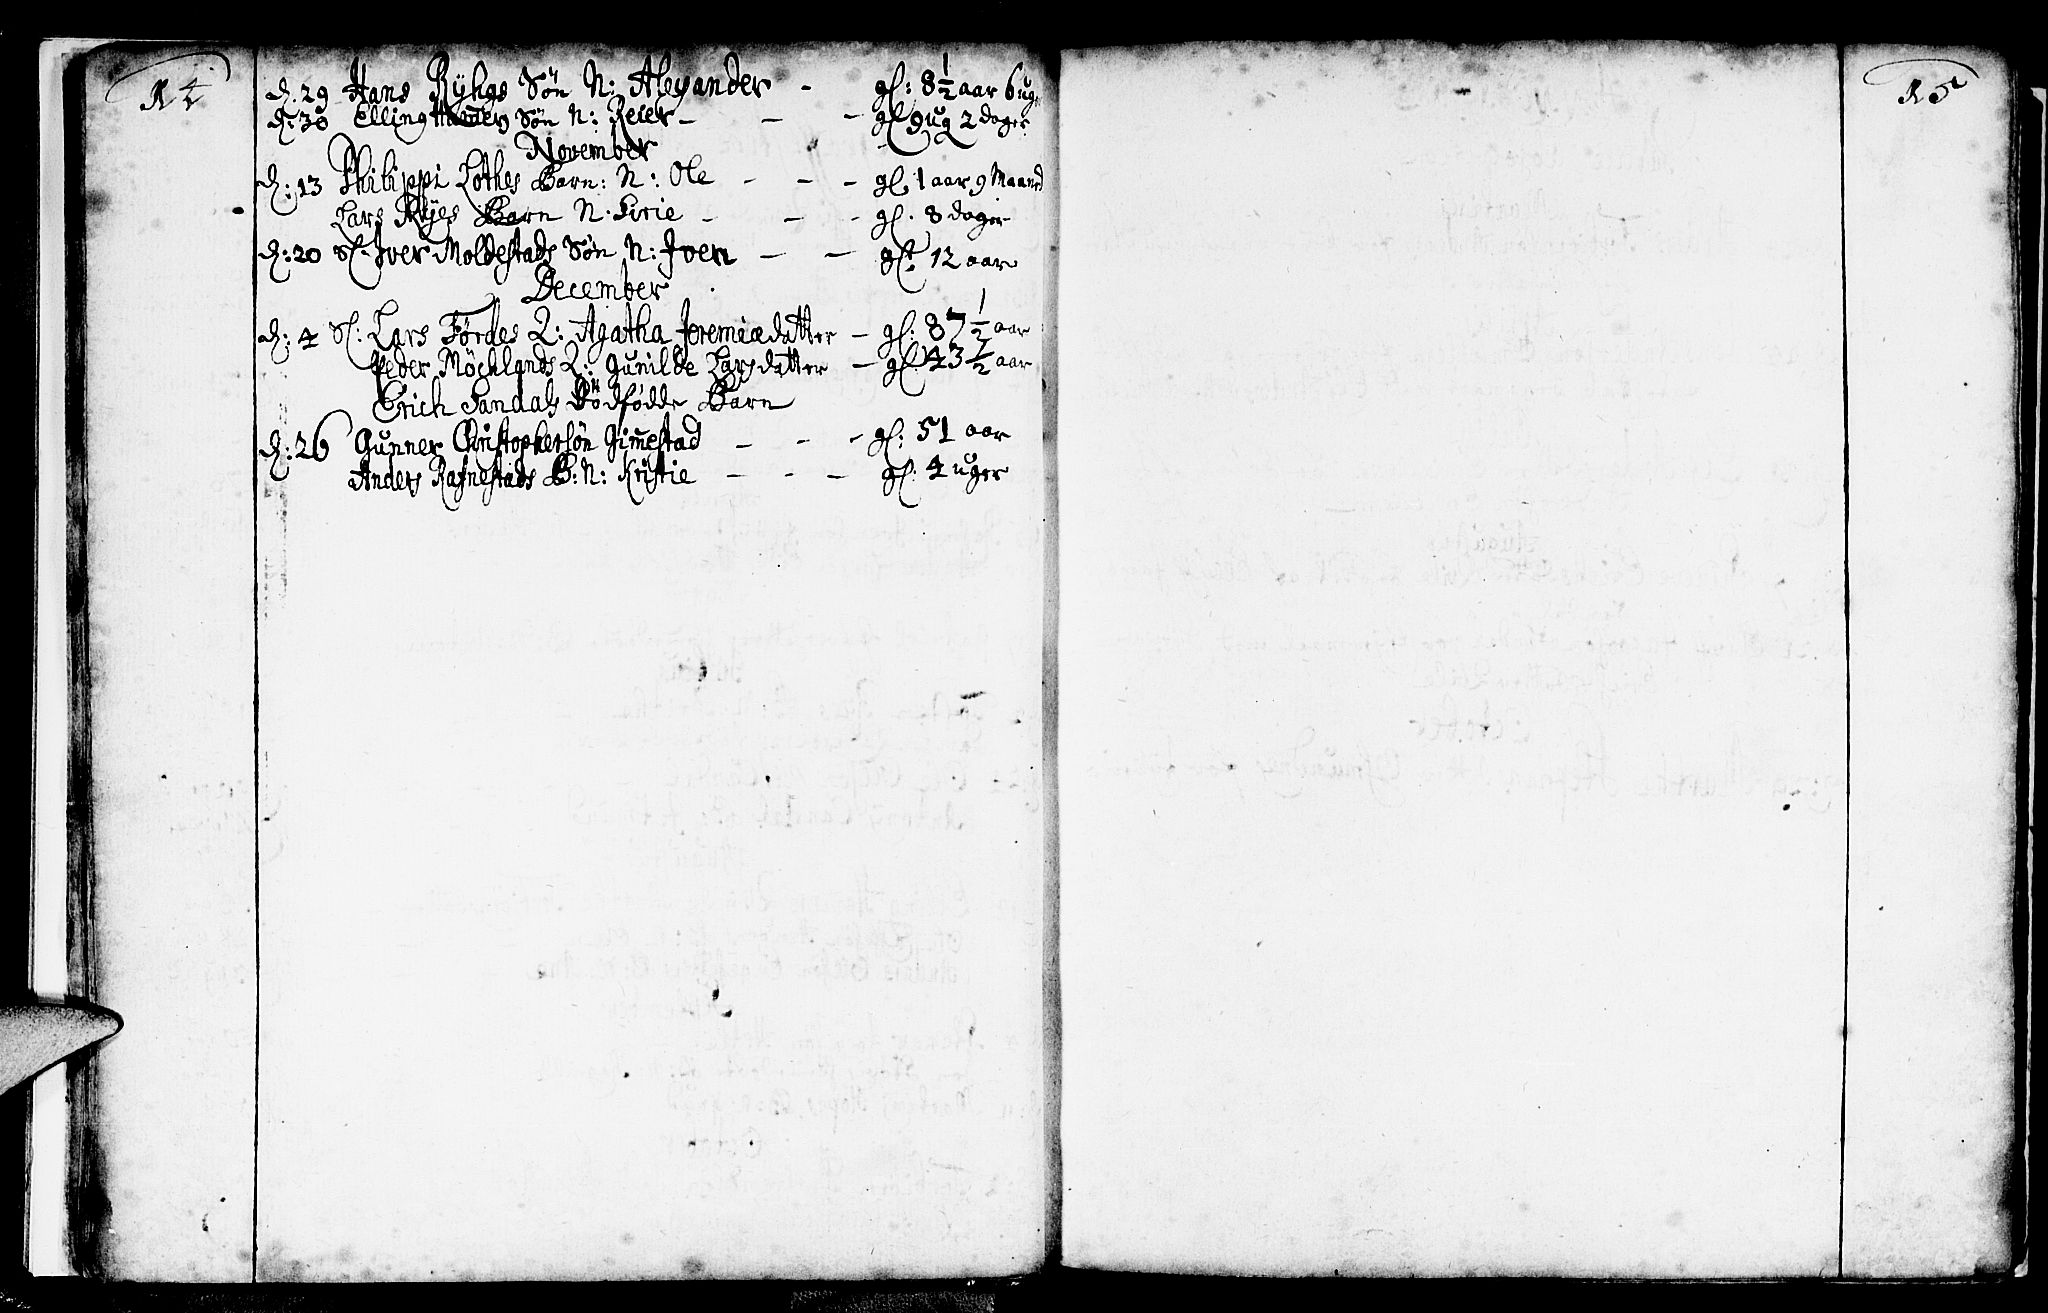 14
d: 29 Hans Ryhgs Søn N: Alexander - gl: 8 1/2 aar 6 uger
d: 30 Elling Søn N: Reier - - - gl 9 ug 2 dager
November
d: 13 Philippi Lothes Barn: N: Ole - - - gl. 1 aar 9 Maaned
Lars Ryes Barn N. Sirie - - - gl. 8 dager
d: 20 Sl. Iver Moldestads Søn N: Iver - - gl. 12 aar
December
d: 4 Sl: Lars Førdes Q: Agatha Jeremiædatter - gl: 87 1/2 aar
Peder Møchlands Q: Gunilde Larsdatter - gl 43 1/2 aar
Erich Sandals Dödfødde Barn
d: 26 Gunner Christophersøn Gim̄estad - - - gl: 51 aar
Anders Rafnestads B: N: Kristie - - - gl. 4 uger
15